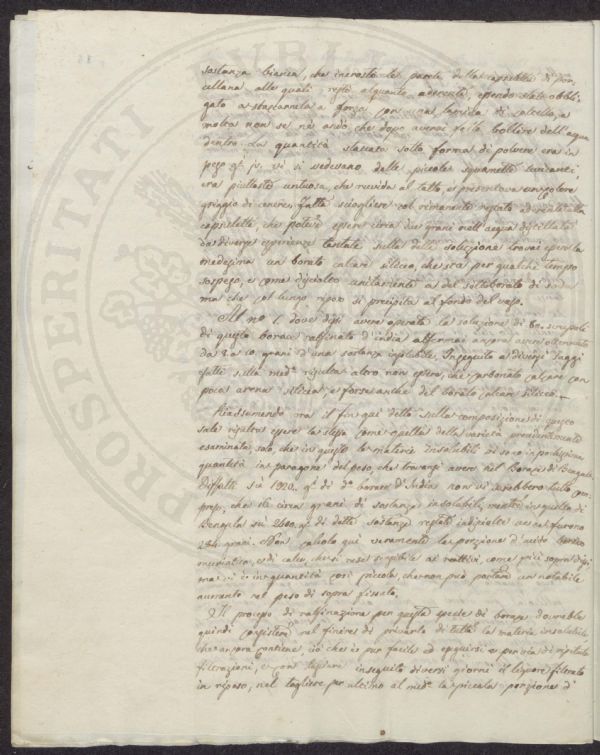 sostanza bianca, che incrostò le pareti della capsuletta di por-
cellana alle quali restò alquanto aderente, essendo stato obbli-
gato a staccarnela a forza con una lamina di coltello, e
molta non se ne andò, che dopo avervi fatto bollire dell'acqua
dentro. La quantità staccata sotto forma di polvere era in
peso g.i jv. vi si vedevano delle piccole squamette lucenti,
era piuttosto untuosa, che ruvida al tatto, e presentava un colore
griggio di cenere. Fatta sciogliere col rimanente restato aderente alla
capsuletta che poteva essere circa due grani nell'acqua distillata
da diverse esperienze tentate sulla detta soluzione trovai essere la
medesima un borato calcare siliceo, che sta per qualche tempo
sospeso, e come disciolto unitamente a del sottoborato di soda
ma che col lungo riposo si precipita al fondo del vaso.
Al n.o 1. dove dissi avere operata la soluzione di 60. scrupoli
di questo borace raffinato d'india affermai ancora avere ottenuto
da 8 a 10 grani d'una sostanza insolubile. In seguito a diversi saggi
fatti sulla med.a risulta altro non essere, che carbonato calcare con
poca arena silicia, e forse anche del borato calcare siliceo. -
Riassumendo ora il fin qui detto sulla composizione di questo
sale risulta essere la stessa come quella della varietà precedentemente
esaminata, solo, che in questo le materie insolubili vi sono in pochissima
quantità in paragone del peso, che trovansi avere nel Borace di Bengala.
Diffatti su 1920. g.i di d.o borace d'India non vi sarebbero tutto com-
preso, che 16 circa grani di sostanze insolubili, mentre in quello di
Bengala su 2400. g.i di dette sostanze restate indisciolte ve ne furono
284 grani. Non calcolo qui veramente la porzione d'acido
muriatico, e di calce, che si rese sensibile ai reattivi, come feci sopra
ma vi è in quantità così piccola, che non può portare un notabile
aumento nel peso di sopra fissato.
Il processo di raffinazione per questa specie di borace dovrebbe
quindi consistere nel finire di privarlo di tutta la materia insolubile
che ancora contiene, ciò che è pur facile ad eseguirsi e per via di ripetute
filtrazioni, e con lasciare in seguito diversi giorni il liquore filtrato
in riposo, nel togliere per ultimo al med.o la piccola porzione d'